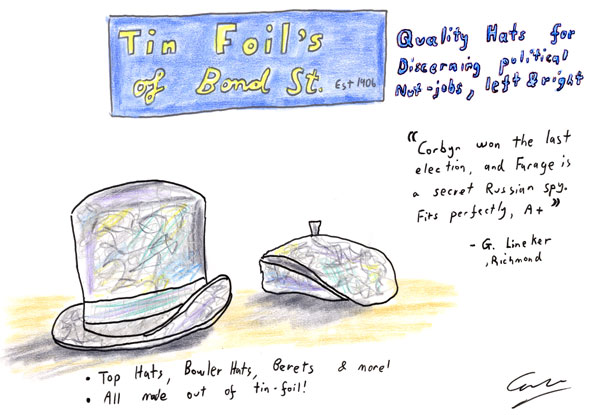 Tin Foil's
of Bond St.
Est 1906
Quality Hats for
Discerning political
Nut-jobs, left & right
"Corbyn won the last
election, and Farage is
a secret Russian spy.
Fits perfectly, A+"
- G. Lineker
, Richmond
• Top Hats, Bowler Hats, Berets & more!
• All made out of tin-foil!